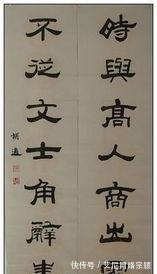 時與高人商出
不從文士角辭
快传号/